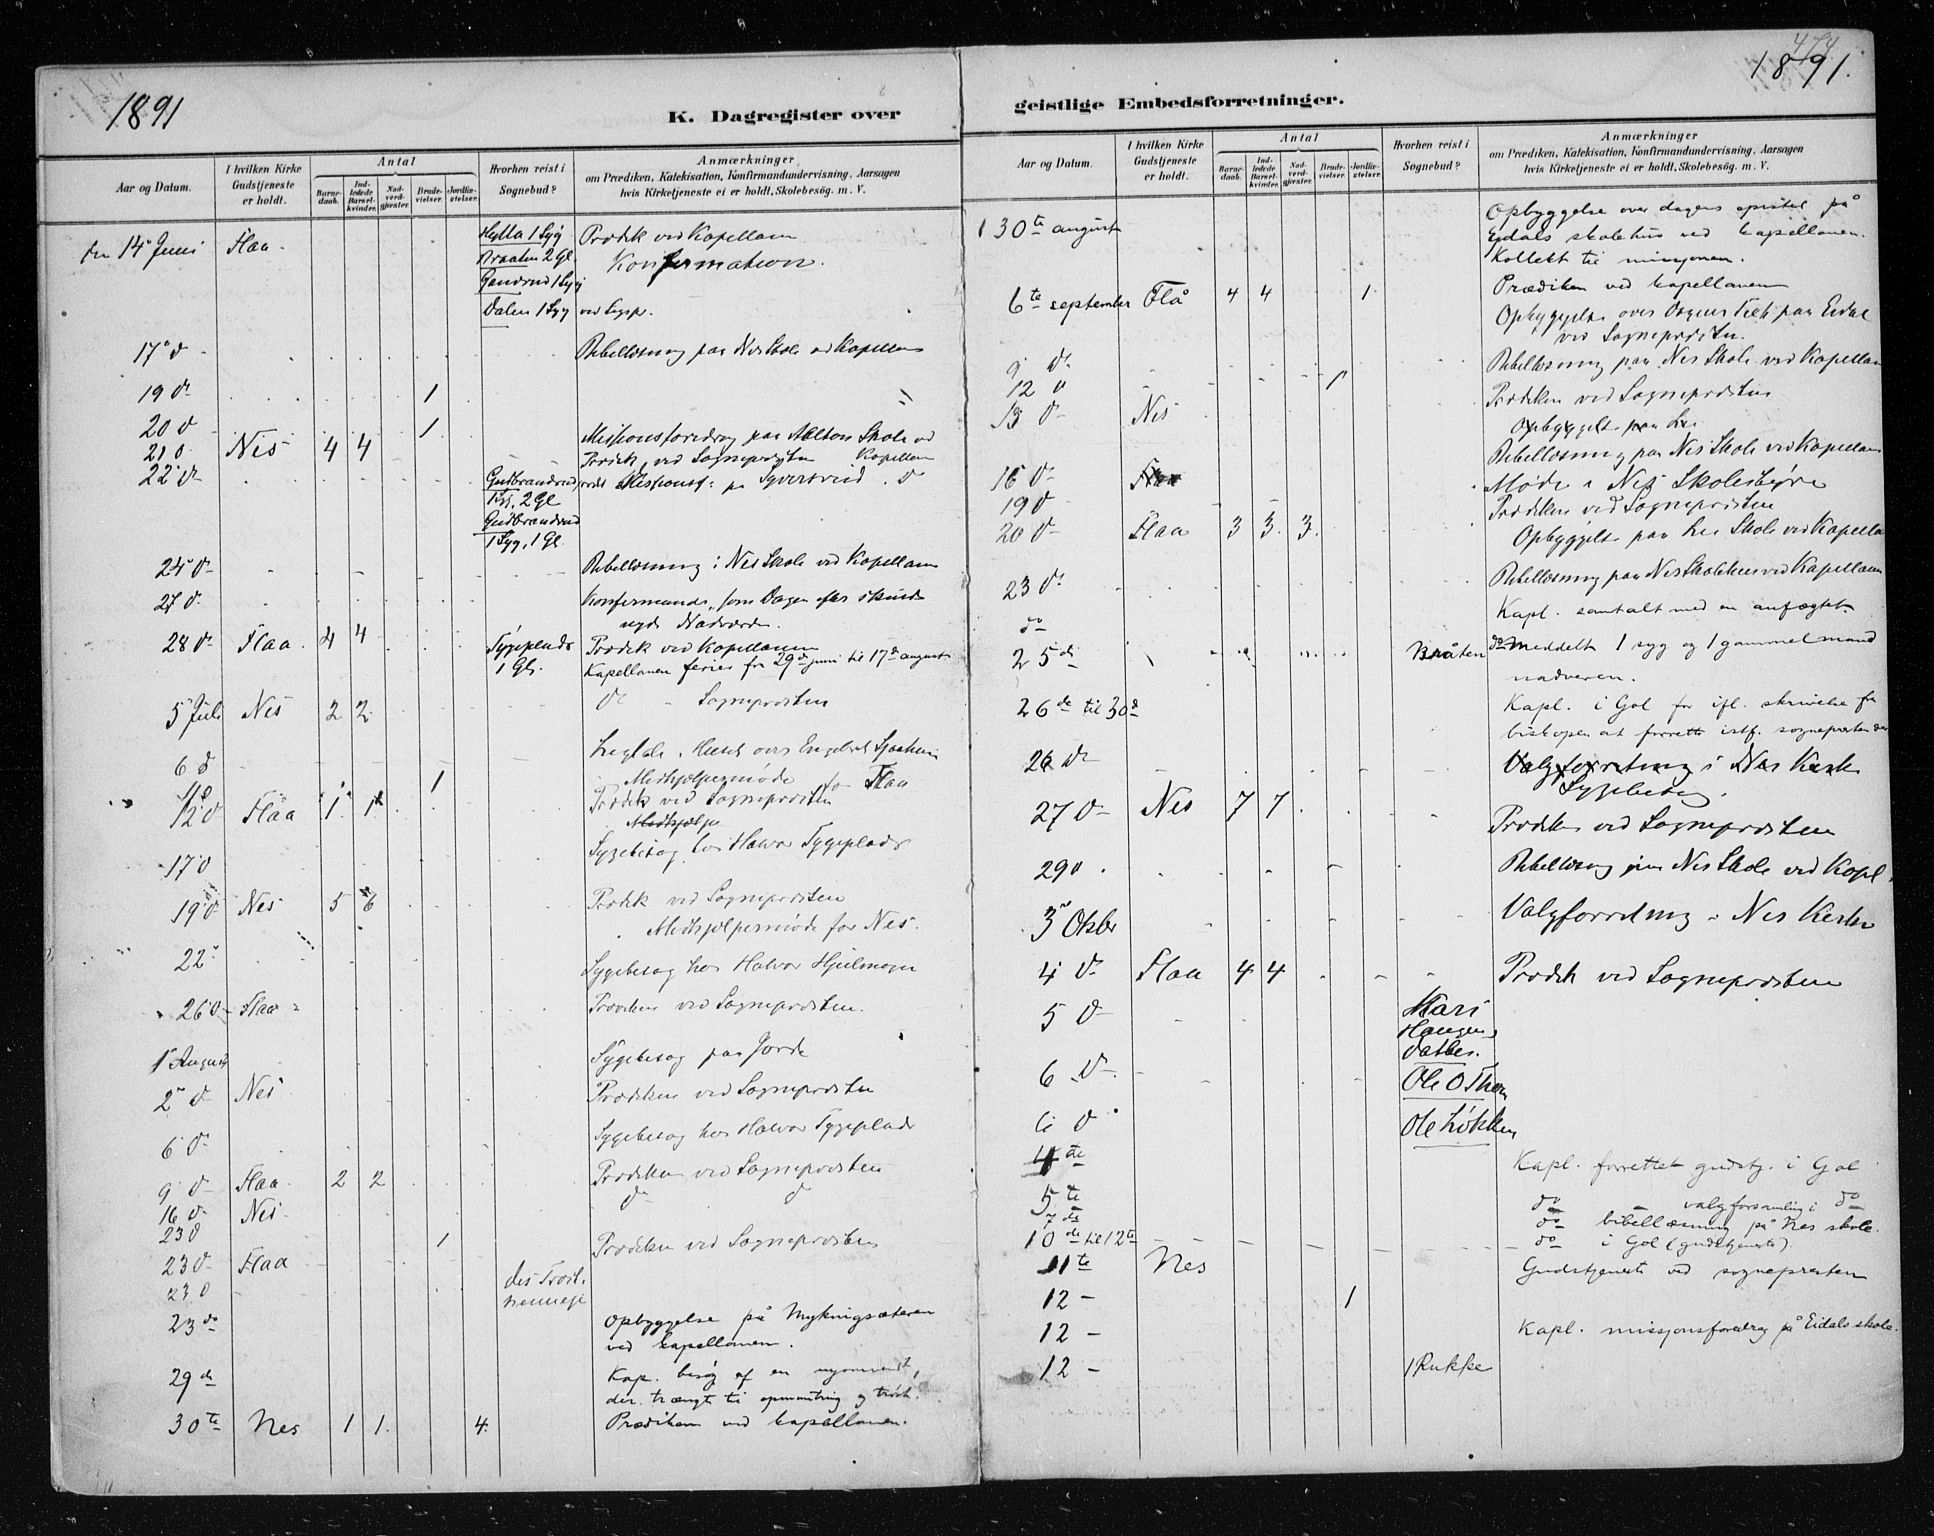 1891
K. Dagregister over
Aar og Datum.
I hvilken Kirke Gudstjeneste er holdt.
Antal
Barnedaab.
Indledede Barselkvinder.
Nadverdgjester.
Brudevielser.
Jordfæstelser.
Hvorhen reist i Sognebud?
Anmærkninger
om Prædiken, Katekisation, Konfirmandundervisning, Aarsagen
hvis Kirketjeneste ei er holdt, Skolebesøg. m. V.
14 Juni Flaa Hylla 1 Syg Prædik ved Kapellanen
Braaten 2 Gl. Konfirmation.
1 Syg
Dalen 1 Syg ved Sogpr.
17 d Bibellæsning paa Nes Skole ved Kapellanen
19 d 1
20 d 1 Missionsforedrag paa Skole ved
21 d Nes 4 4 Prædik ved Sogneprosten Kapellanen
22 d Gudbrandsrud
1 Syg, 2 Gl
Gudbrandsrud
1 Syg, 1 Gl.
24 d Bibellæsning i Nes Skole ved Kapellanen
27 d Konfirmander, som Dagen efter skulde
nyde Nadverden.
28 d Flaa 4 4 Tygeplads Prædik ved Kapellanen
1 Gl. Kapellanen feries fra 29de juni til 17de august
5 Juli Nes 2 2 do Sogneprosten
6 d
1 Medhjælpermøde for Flaa
12 d Flaa 1 1 Prædik ved Sogneprosten
17 d Sygebesøg hos Halvor Tygeplads
19 d Nes 5 6 Prædik ved Sogneprosten
Medhjælpermøde for Nes.
22 Sygebesøg hos Halvor Hjulmager
26 d Flaa Prædiken ved Sogneprosten.
1 August Sygebesøg paa Jorde
2 d Nes Prædiken ved Sogneprosten
6 d Sygebesøg hos Halvor Tygeplads
9 d Flaa 2 2 Prædiken ved Sogneprosten
16 d Nes d d
23 d 1
23 d Flaa Prædiken ved Sogneprosten
23 d
23 do Opbyggelse på Mykingsæteren
ved kapellanen.
29 de Kap. besøg af en
der trængte til opmuntring og trøst.
30te Nes 1 1 4. Prædiken ved kapellanen.
474
1891.
geistlige Embedsforretninger.
Aar og Datum.
I hvilken Kirke Gudstjeneste er holdt.
Antal
Barnedaab.
Indledede Barselkvinder.
Nadverdgjester.
Brudevielser.
Jordfæstelser.
Hvorhen reist i Sognebud?
Anmærkninger
om Prædiken, Katekisation, Konfirmandundervisning, Aarsagen
hvis Kirketjeneste ei er holdt, Skolebesøg. m. V.
30te august Opbyggelse over dagens epistel på
Eidals skolehus ved kapellanen.
Kollekt til missjonen.
6te september Flå 4 4 1 Prædiken ved kapellanen
Opbyggelse over Dagens Text paa Eidal
ved Sogneprosten.
9 d Bibellæsning paa Nes Skole ved Kapellan
12 d 1
13 d Nes Prædiken ved Sogneprosten
Opbyggelse paa
16 d Bibellæsning paa Nes Skole ved Kapellan
19 d Møde i Nes Skolestyre
20 d Flaa 3 3 3. Prædiken ved Sogneprosten
Opbyggelse paa Skole ved Kapellan
23 d Bibellæsning paa Nes Skolehus ved Kapellanen
do Kapl. samtalt med en anfægtet.
25 de Bråten do meddelt 1 syg og 1 gammel mand
nadveren.
26de til 30d Kapl. i Gol for ifl. skrivelse fra
biskopen at forrette istf. sognepresten der
26 d Valgforretning i Nes Kirke
Sygebesøg.
27 d Nes 7 7 Prædiken ved Sogneprosten
29 d Bibellæsning paa Nes Skole ved Kapl.
3 Oktbr Valgforretning i Nes Kirke
4 d Flaa 4 4 Prædik ved Sogneprosten
5 d Mari
Haugen
6 d Ole O Thon
6 d Ole Løkken
4de Kapl. forrettet gudstj. i Gol
5te do valgforsamling i do
7de do bibellæsning på Nes skole.
10de til 12te do i Gol (gudstjeneste).
11te Nes Gudstjeneste ved sognepresten
12 – 1
12 – Kapl. missjonsforedrag på Eidals skole.
12 – 1 Rukke